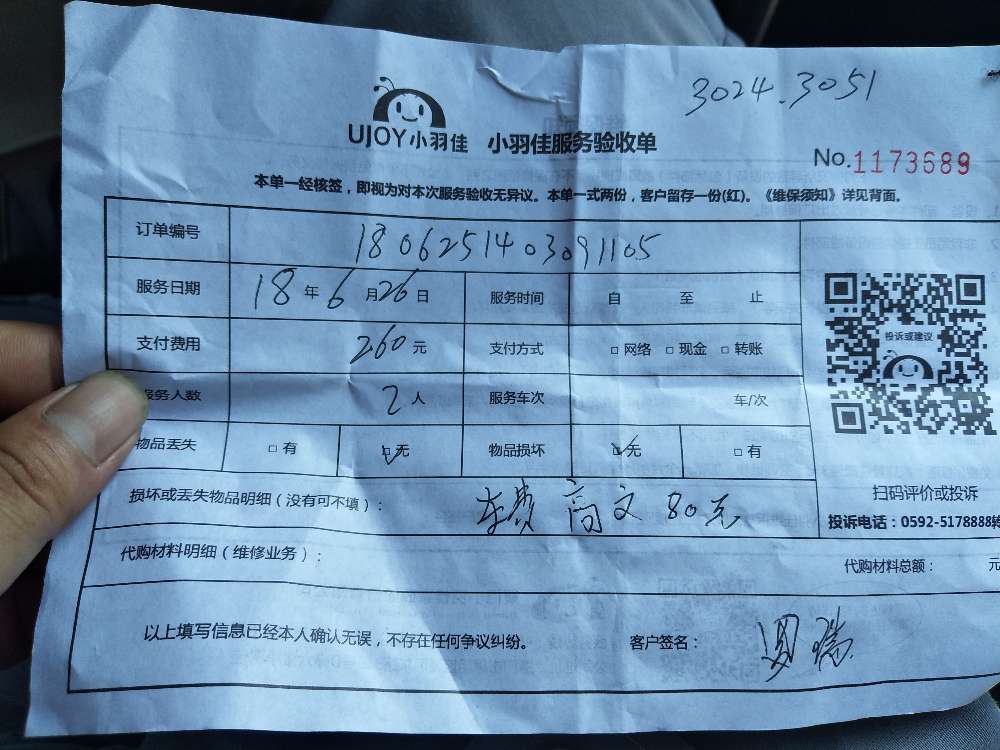 3024.3051
UJOY小羽佳 小羽佳服务验收单
No.1173689
本单一经核签，即视为对本次服务验收无异议。本单一式两份，客户留存一份(红)。《维保须知》详见背面。
订单编号 1806251403091105
服务日期 18年6月26日 服务时间 自 至 止
投诉或建议
支付费用 260元 支付方式 □网络 □现金 □转账
服务人数 2人 服务车次 车/次
物品丢失 □有 ☑无 物品损坏 ☑无 □有
扫码评价或投诉
损坏或丢失物品明细（没有可不填）： 车费 高文 80元
投诉电话：0592-5178888转
代购材料明细（维修业务）： 代购材料总额： 元
以上填写信息已经本人确认无误，不存在任何争议纠纷。 客户签名：